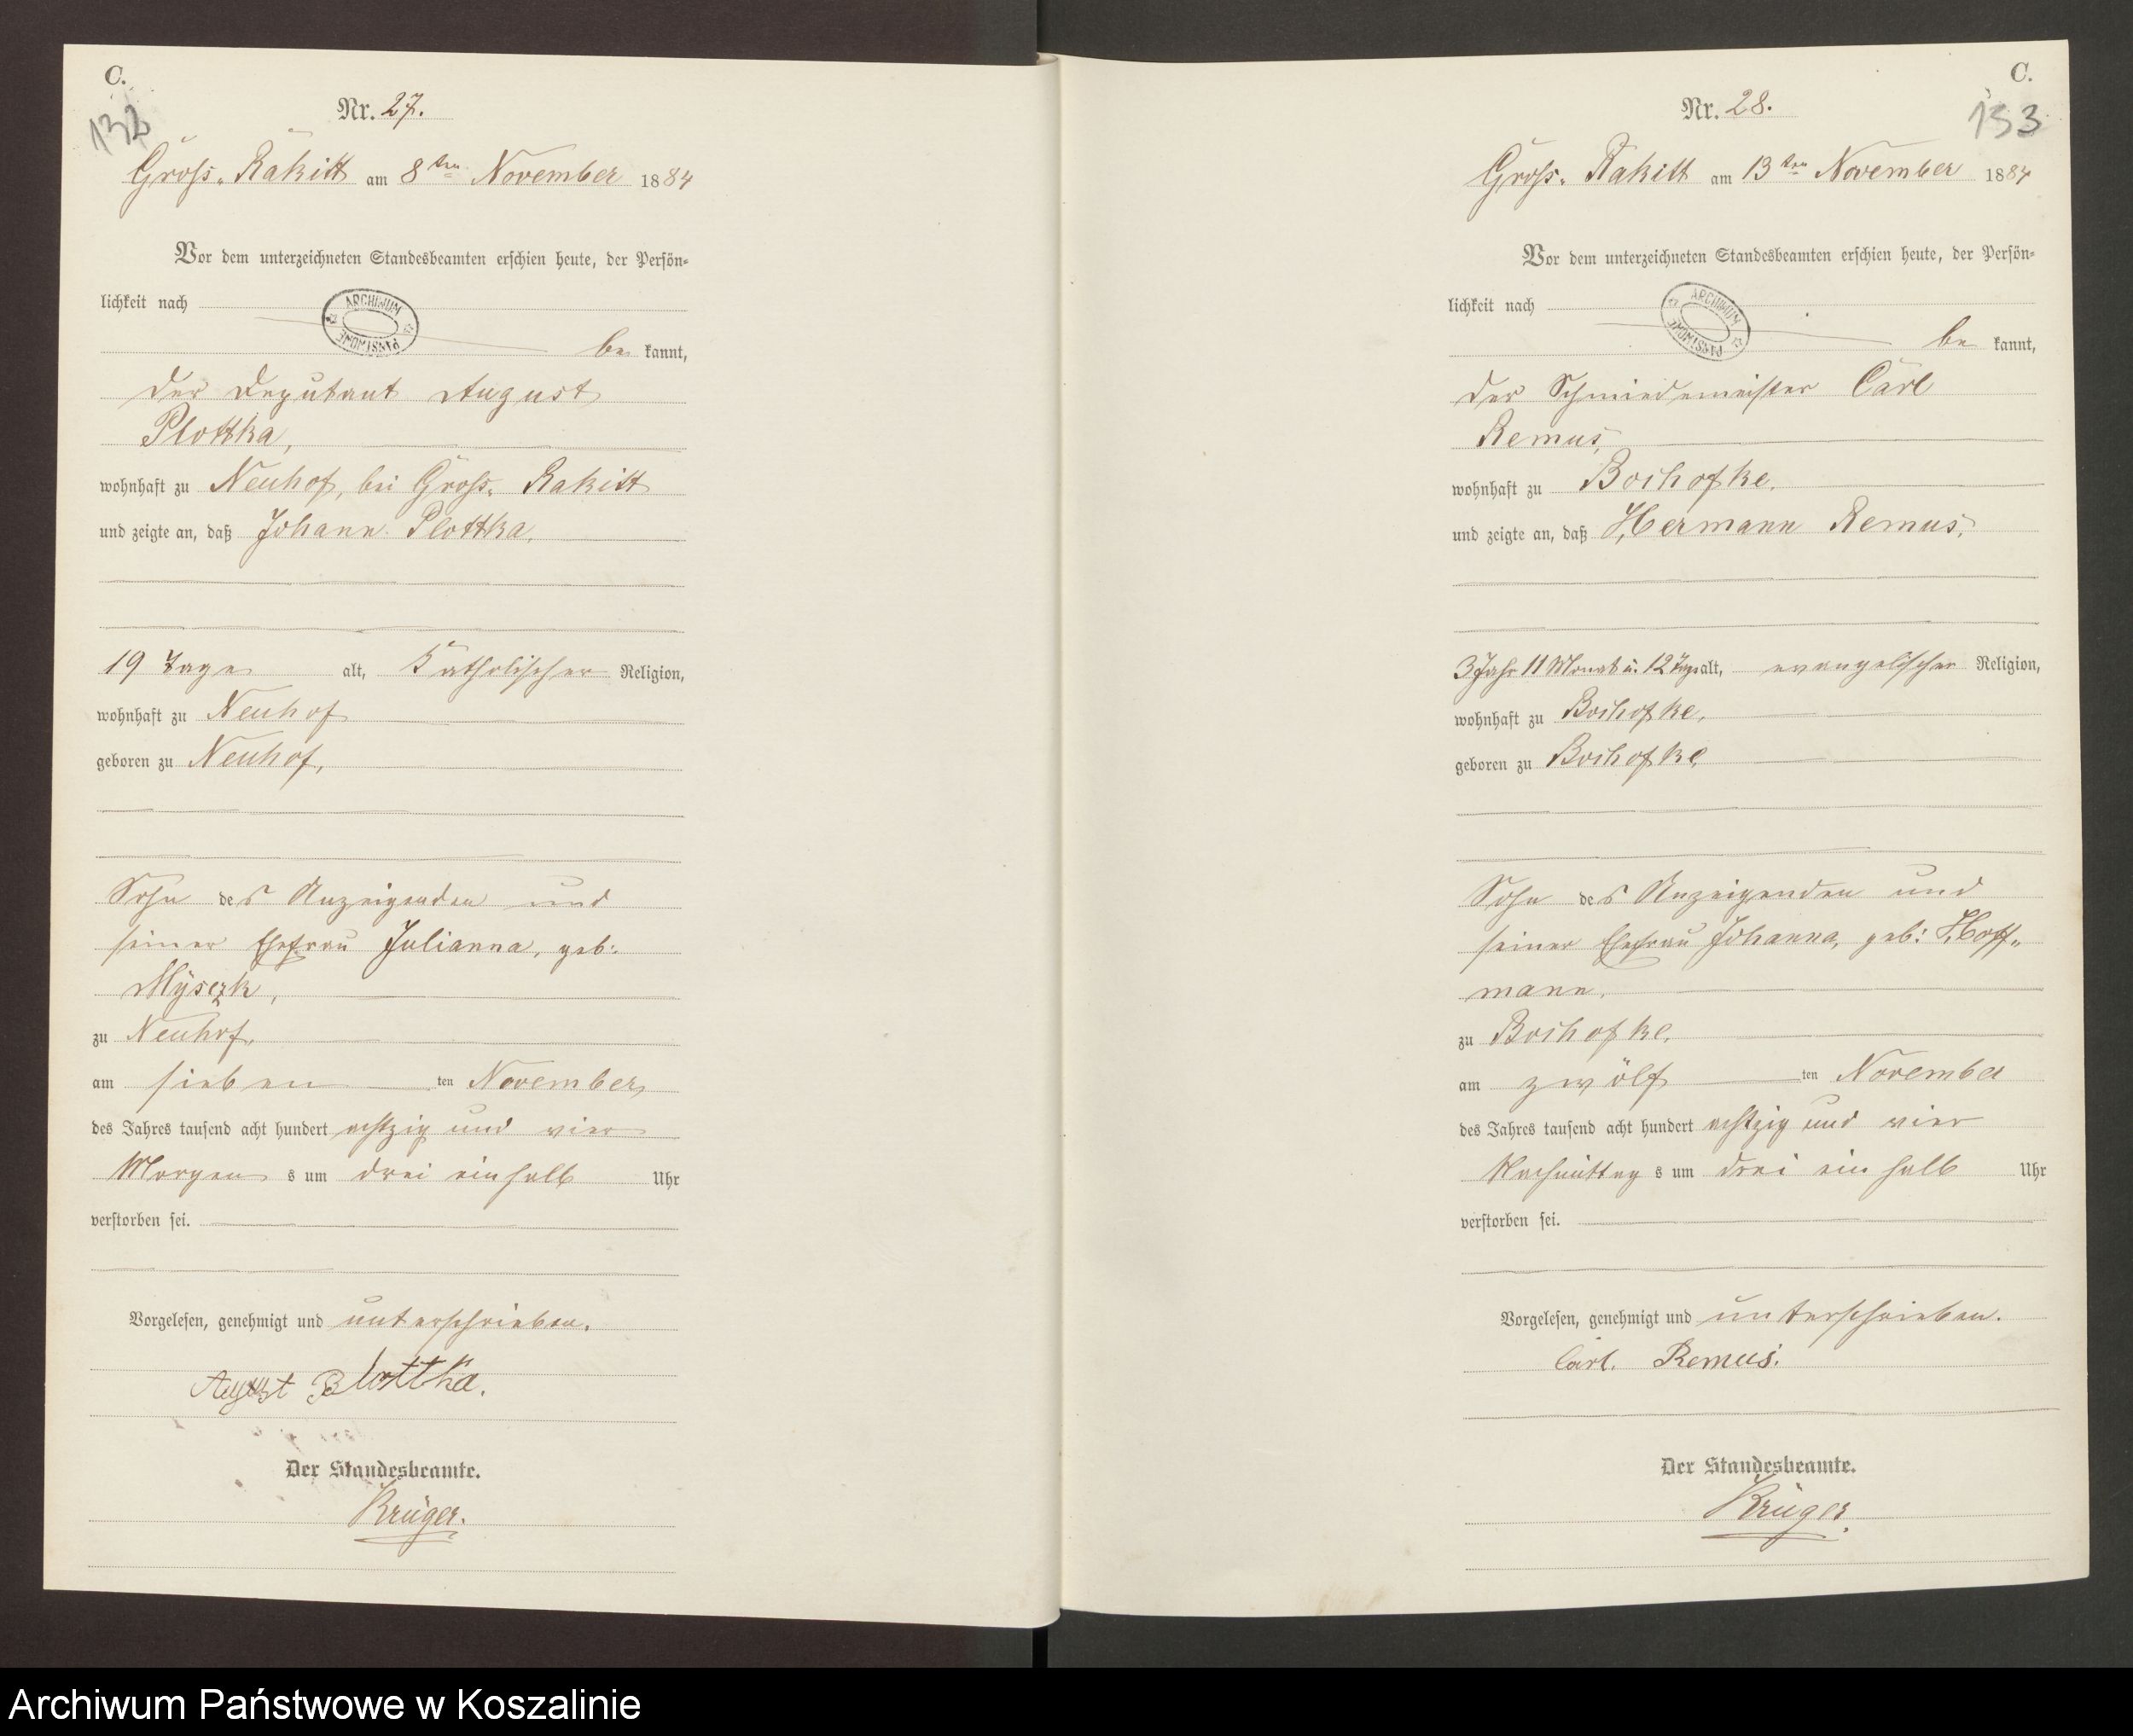 C.
132
Nr. 27.
Groß-Rakitt am 8ten November 1884
Vor dem unterzeichneten Standesbeamten erschien heute, der Persön-
lichkeit nach
ARCHIWUM PAŃSTWOWE
be kannt,
der Deputant August
Plottka,
wohnhaft zu Neuhof, bei Groß-Rakitt
und zeigte an, daß Johann Plottka,
19 Tage alt, Katholischer Religion,
wohnhaft zu Neuhof
geboren zu Neuhof,
Sohn des Anzeigenden und
seiner Ehefrau Julianna, geb:
zu Neuhof,
am sieben ten November
des Jahres tausend acht hundert achtzig und vier
Morgen s um drei ein halb Uhr
verstorben sei.
Vorgelesen, genehmigt und unterschrieben.
August Plottka.
Der Standesbeamte.
Krüger.
C.
133
Nr. 28.
Groß-Rakitt am 13ten November 1884
Vor dem unterzeichneten Standesbeamten erschien heute, der Persön-
lichkeit nach
ARCHIWUM PAŃSTWOWE
be kannt,
der Schmiedemeister Carl
Remus,
wohnhaft zu Bochofke,
und zeigte an, daß Hermann Remus,
3 Jahr 11 Monat u. 12 Tage alt, evangelischer Religion,
wohnhaft zu Bochofke,
geboren zu Bochofke,
Sohn des Anzeigenden und
seiner Ehefrau Johanna, geb: Hoff-
mann,
zu Bochofke,
am zwölf ten November
des Jahres tausend acht hundert achtzig und vier
Nachmittag s um drei ein halb Uhr
verstorben sei.
Vorgelesen, genehmigt und unterschrieben.
Carl. Remus.
Der Standesbeamte.
Krüger.
Archiwum Państwowe w Koszalinie